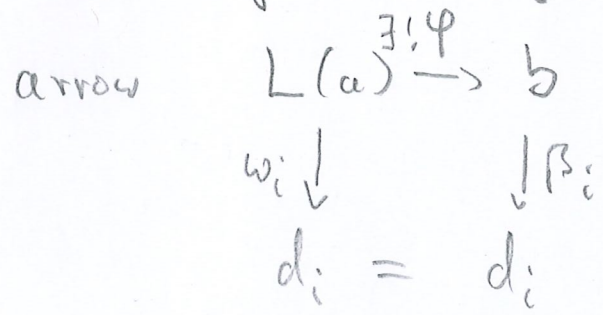 ∃!φ
arrow L(a) → b
ωᵢ ↓ ↓ βᵢ
dᵢ = dᵢ